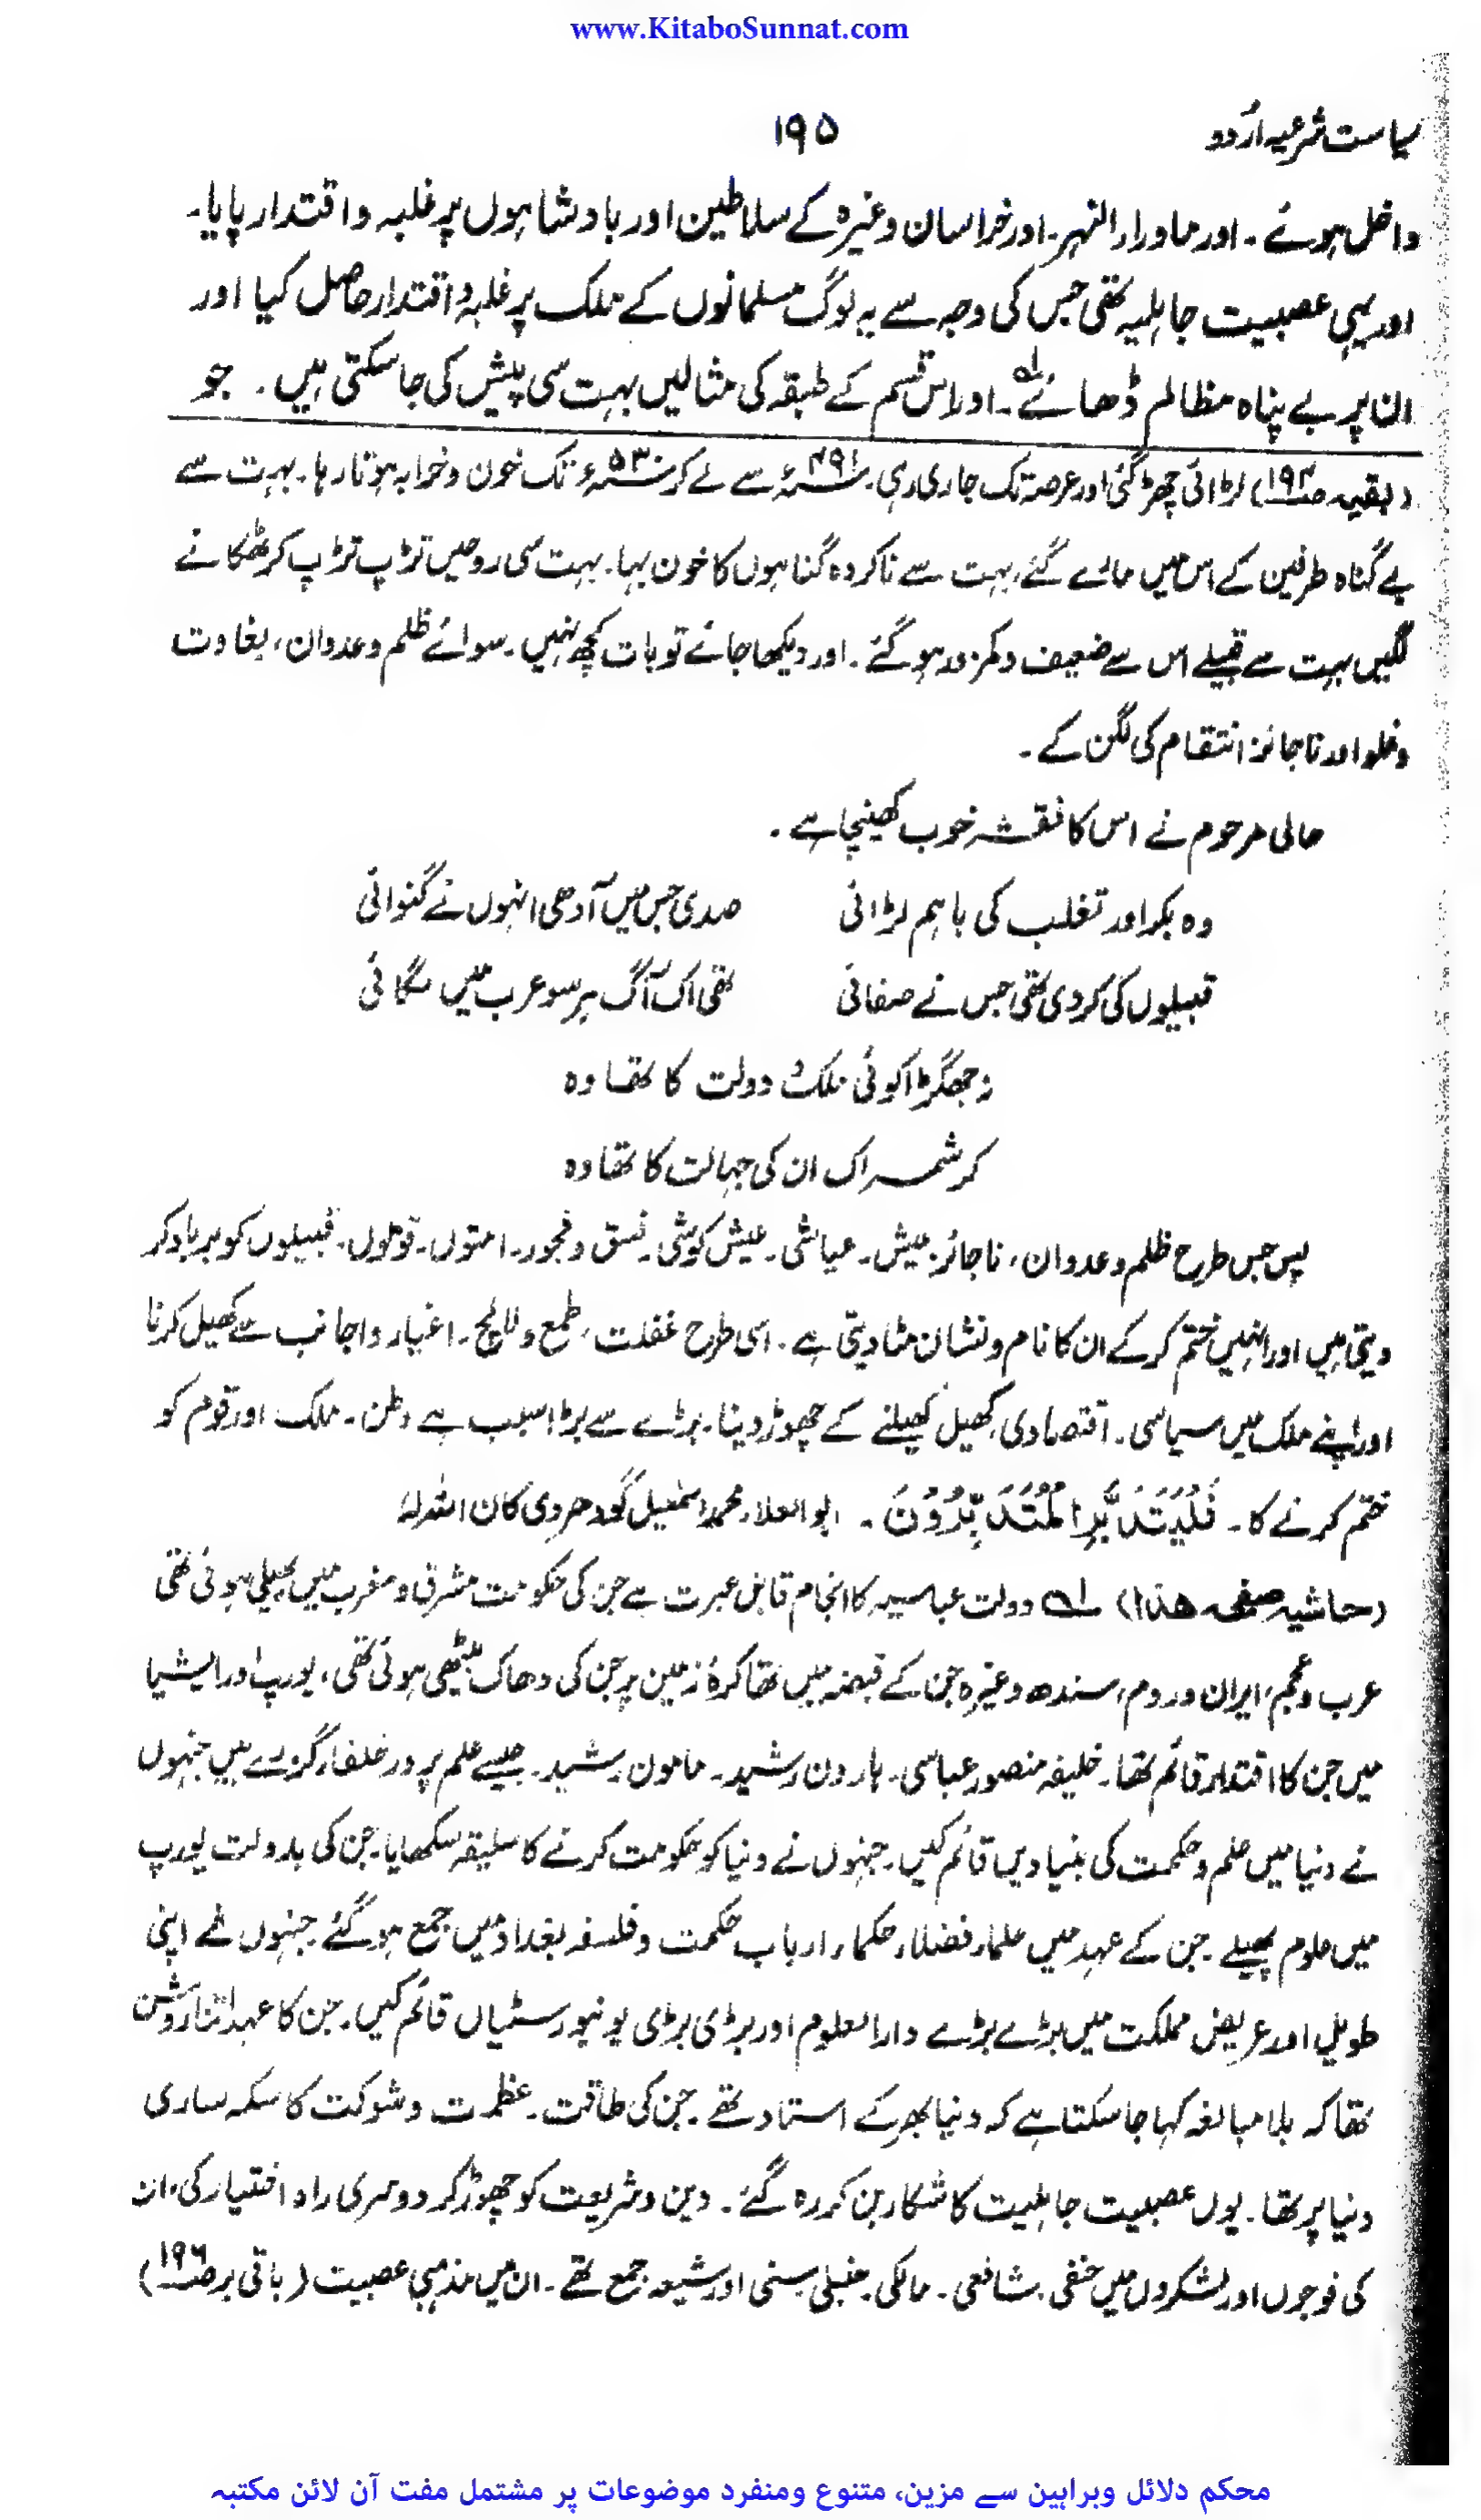 www.KitaboSunnat.com
سیاست شرعیہ اُردو
۱۹۵
داخل ہوئے ۔ اور ماوراء النہر۔ اور خراسان وغیرہ کے سلاطین اور بادشاہوں پر غلبہ و اقتدار پایا۔
اور یہی عصبیت جاہلیہ تھی جس کی وجہ سے یہ لوگ مسلمانوں کے ملک پر غلبہ و اقتدار حاصل کیا اور
ان پر بے پناہ مظالم ڈھائے لہ ۔ اور اس قسم کے طبقہ کی مثالیں بہت سی پیش کی جا سکتی ہیں ۔ جو
(بقیہ صـ۱۹۴) لڑائی چھڑ گئی اور عرصہ تک جاری رہی۔ ۴۹۱ء سے لے کر ۵۳۰ء تک خون و خرابہ ہوتا رہا۔ بہت سے
بے گناہ طرفین کے اس میں مارے گئے، بہت سے ناکردہ گناہوں کا خون بہا۔ بہت سی روحیں تڑپ تڑپ کر ٹھکانے
لگیں بہت سے قبیلے اس سے ضعیف و کمزور ہو گئے ۔ اور دیکھا جائے تو بات کچھ نہیں۔ سوائے ظلم و عدوان، بغاوت
وغلو اور ناجائز انتقام کی لگن کے ۔
حالی مرحوم نے اس کا نقشہ خوب کھینچا ہے ۔
وہ بکر اور تغلب کی باہم لڑائی صدی جس میں آدھی انہوں نے گنوائی
قبیلوں کی کر دی تھی جس نے صفائی تھی اک آگ ہر سو عرب میں لگائی
نہ جھگڑا کوئی ملک و دولت کا تھا وہ
کرشمہ اک ان کی جہالت کا تھا وہ
پس جس طرح ظلم و عدوان، ناجائز عیش۔ عیاشی۔ عیش کوشی۔ فسق و فجور۔ امتوں۔ قوموں۔ قبیلوں کو برباد کر
دیتی ہیں اور انہیں ختم کر کے ان کا نام و نشان مٹا دیتی ہے ۔ اسی طرح غفلت، طمع و لالچ۔ اغیار و اجانب سے کھیل کرنا
اور اپنے ملک میں سیاسی۔ اقتصادی کھیل کھیلنے کے چھوڑ دینا۔ بڑے سے بڑا سبب ہے وطن۔ ملک اور قوم کو
ختم کرنے کا۔ فَلْيَتَدَبَّرِ الْمُتَدَبِّرُوْنَ ۔ ابو العلاء محمد اسمٰعیل گودھروی کان اللہ لہٗ
(حاشیہ صفحہ ھذا) لہ دولت عباسیہ کا انجام قابل عبرت ہے جن کی حکومت مشرق و مغرب میں پھیلی ہوئی تھی
عرب و عجم، ایران و روم، سندھ وغیرہ جن کے قبضہ میں تھا کرۂ زمین پر جن کی دھاک بیٹھی ہوئی تھی، یورپ اور ایشیا
میں جن کا اقتدار قائم تھا۔ خلیفہ منصور عباسی۔ ہارون رشید۔ مامون رشید۔ جیسے علم پرور خلفاء گزرے ہیں جنہوں
نے دنیا میں علم و حکمت کی بنیادیں قائم کیں۔ جنہوں نے دنیا کو حکومت کرنے کا سلیقہ سکھایا۔ جن کی بدولت یورپ
میں علوم پھیلے۔ جن کے عہد میں علماء فضلاء، حکماء، ارباب حکمت و فلسفہ بغداد میں جمع ہو گئے جنہوں نے اپنی
طویل اور عریض مملکت میں بڑے بڑے دارالعلوم اور بڑی بڑی یونیورسٹیاں قائم کیں۔ جن کا عہد اتنا روشن
تھا کہ بلا مبالغہ کہا جا سکتا ہے کہ دنیا بھر کے استاد تھے ۔ جن کی طاقت۔ عظمت و شوکت کا سکہ ساری
دنیا پر تھا۔ یوں عصبیت جاہلیت کا شکار بن کر رہ گئے ۔ دین و شریعت کو چھوڑ کر دوسری راہ اختیار کی، ان
کی فوجوں اور لشکروں میں حنفی۔ شافعی۔ مالکی۔ حنبلی سنی اور شیعہ جمع تھے۔ ان میں مذہبی عصبیت (باقی بر صـ۱۹۶)
محکم دلائل وبراہین سے مزین، متنوع ومنفرد موضوعات پر مشتمل مفت آن لائن مکتبہ